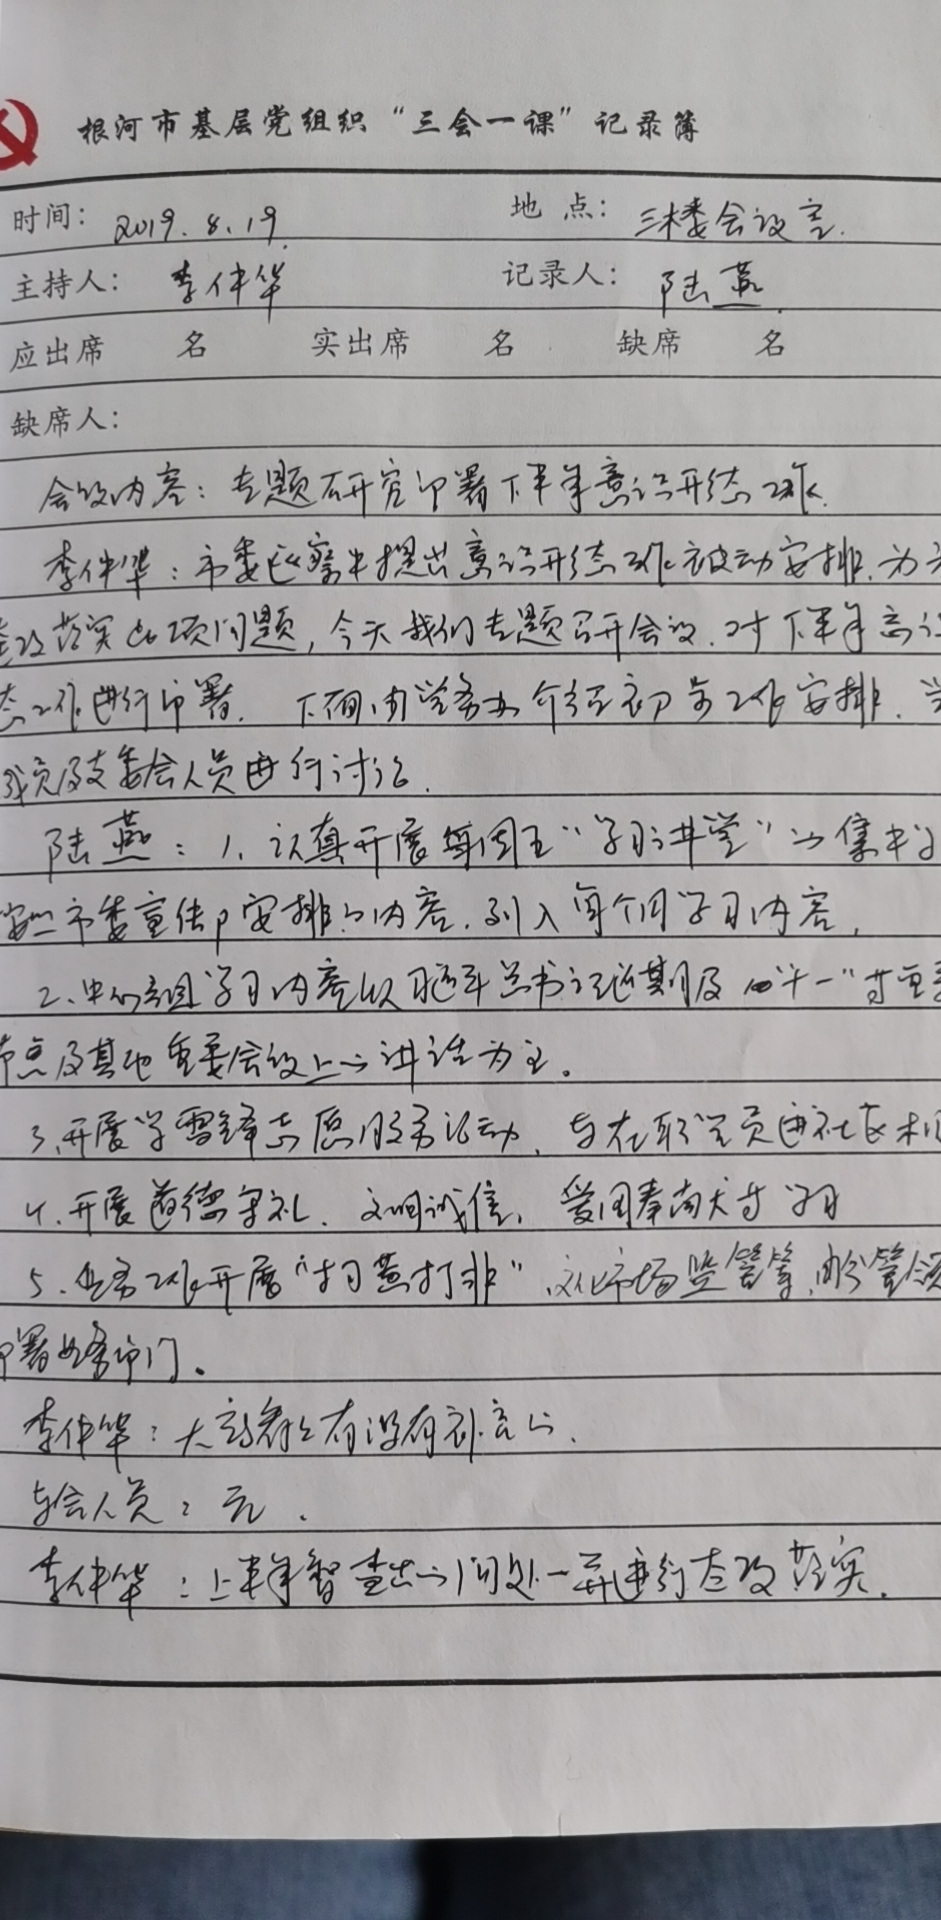 根河市基层党组织“三会一课”记录簿
时间： 2019.8.19 地 点： 三楼会议室.
主持人： 李仲华 记录人： 陆燕.
应出席 名 实出席 名 缺席 名
缺席人：
会议内容：专题研究部署下半年意识形态工作.
李仲华：市委巡察中提出意识形态工作被动安排.为
改落实此项问题，今天我们专题召开会议.对下半年意识
态工作进行部署. 下面由党务办介绍初步工作安排.
成员及支委会人员进行讨论.
陆燕：1.认真开展每周五“学习讲堂”的集中
市委宣传部安排的内容.列入每个周学习内容，
2.中心组学习内容以习近平总书记近期及“十一”等重要
节点及其他重要会议上的讲话为主.
3.开展学雷锋志愿服务活动.与在职党员进社区
4.开展道德守礼.文明诚信，爱国奉献等学习
5.业务工作开展“扫黄打非”.文化市场监管等，由分管领
部署业务部门。
李仲华：大家看看有没有补充的.
与会人员：无.
李仲华：上半年智查出的问处一并进行查改落实.